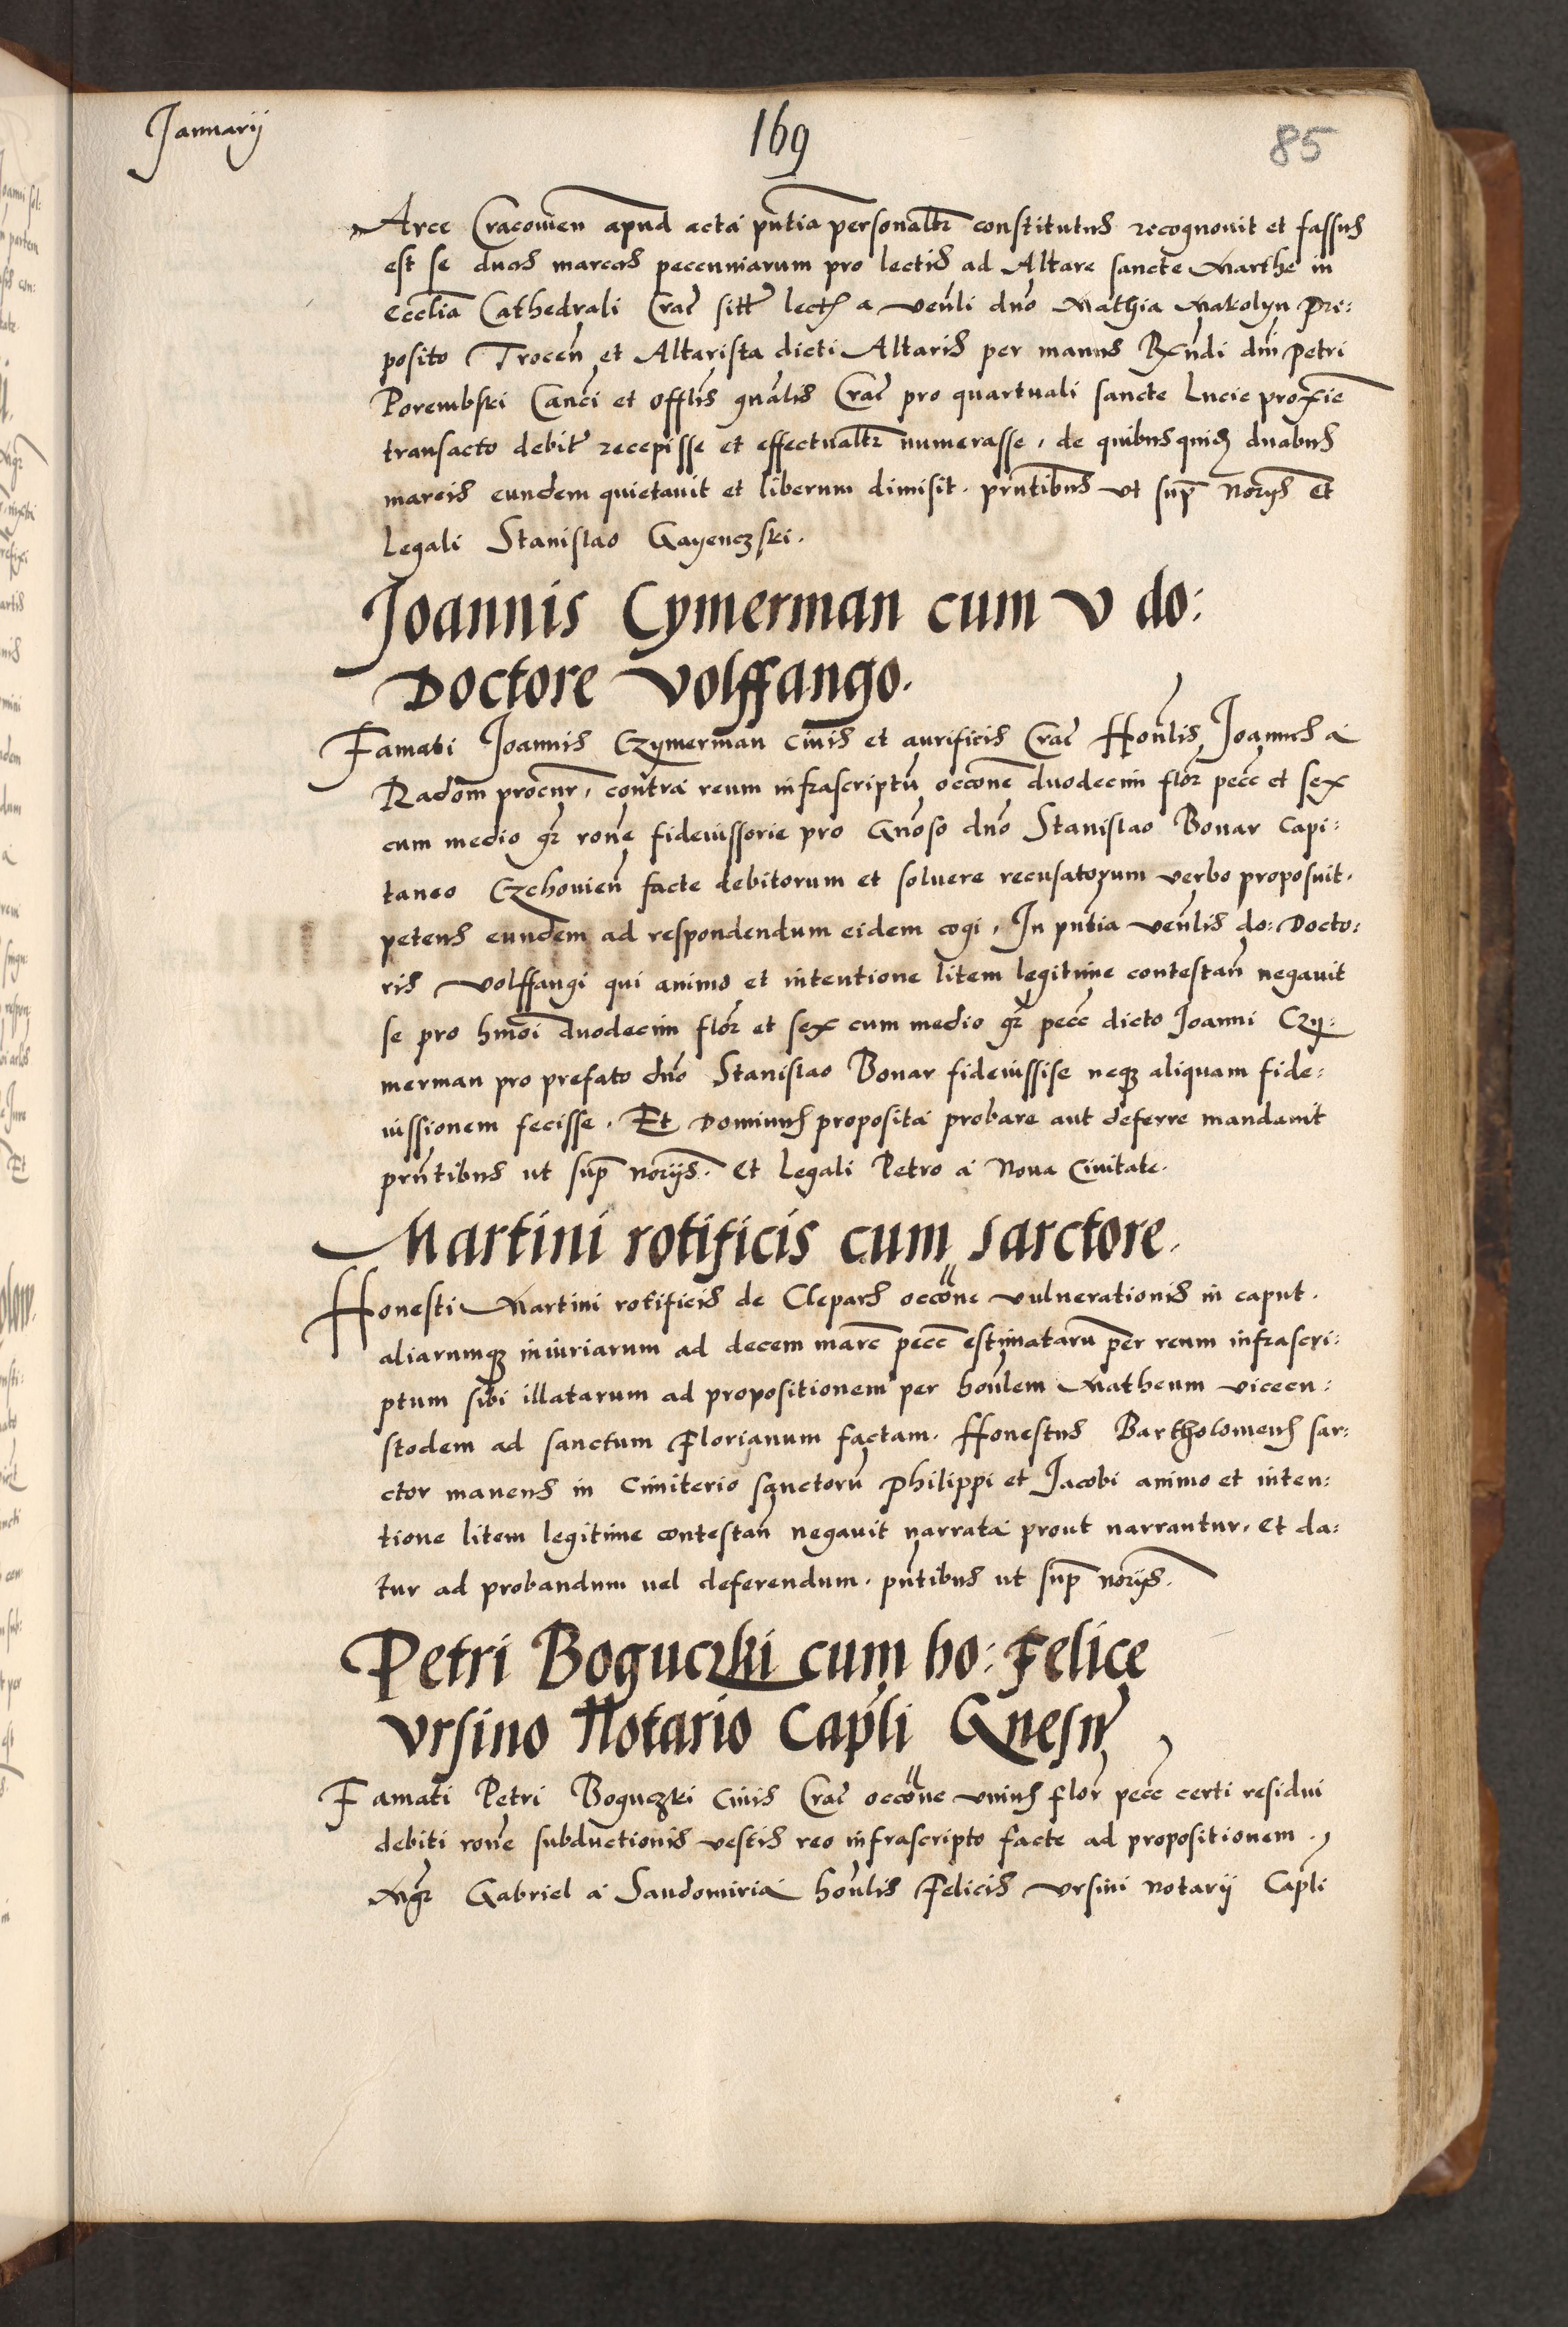 Januarij
169
85
Arce Cracovien apud acta pntia personaltr constitutus recognovit et fassus
est se duas marcas pecuniarum pro lectis ad Altare sancte Marthe in
Ecclia Cathedrali Crac sitt lect a venli dno Mathia Makolyn Pre:
posito Trocen et Altarista dicti Altaris per manus Rndi dni Petri
Porembski Canci et offlis gnalis Crac pro quartuali sancte Lucie proxie
transacto debite recepisse et effectualtr numerasse, de quibusquid duabus
marcis eundem quietavit et liberum dimisit. prntibus ut sup noriis Et
Legali Stanislao Gayenczski.
Joannis Cymerman cum V do:
Doctore Volffango.
Famati Joannis Czymerman civis et aurificis Crac Honlis Joannes a
Radom procur, contra reum infrascriptu occone duodecim flor pecc et sex
cum medio gr rone fideiussorie pro Gnoso dno Stanislao Bonar Capi:
taneo Czchovien facte debitorum et solvere recusatorum verbo proposuit.
petens eundem ad respondendum eidem cogi, In pntia venlis do: Docto:
ris Volffangi qui animo et intentione litem legitime contestan negavit
se pro hmoi duodecim flor et sex cum medio gr pecc dicto Joanni Czy:
merman pro prefato dno Stanislao Bonar fideiussise neq aliquam fide:
iussionem fecisse. Et Dominus proposita probare aut deferre mandavit
prntibus ut sup noriis. Et Legali Petro a Nova Civitate.
Martini rotificis cum sarctore.
Honesti Martini rotificis de Clepars occone vulnerationis in caput.
aliarumq iniuriarum ad decem marc pecc estimataru per reum infrascri:
ptum sibi illatarum ad propositionem per honlem Matheum vicecu:
stodem ad sanctum Florianum factam. Honestus Bartholomeus sar:
ctor manens in Cimiterio sanctoru Philippi et Jacobi animo et inten:
tione litem legitime contestan negavit narrata prout narrantur. Et da:
tur ad probandum vel deferendum. pntibus ut sup noriis.
Petri Boguczki cum ho: Felice
Ursino Notario Capli Gnesn
Famati Petri Boguczki Civis Crac occone unius flor pecc certi residui
debiti rone subductionis vestis reo infrascripto facte ad propositionem.
Mgr Gabriel a Sandomiria honlis Felicis Ursini Notarij Capli